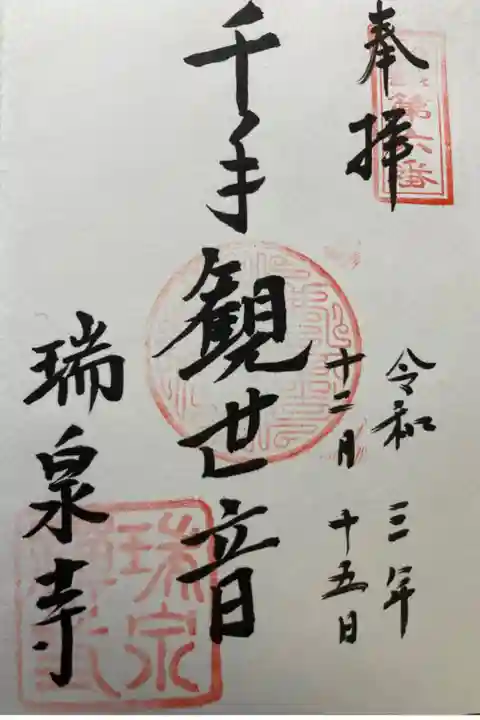 奉拝
第六番
令和三年
十二月十五日
千手観世音
瑞泉寺
瑞泉